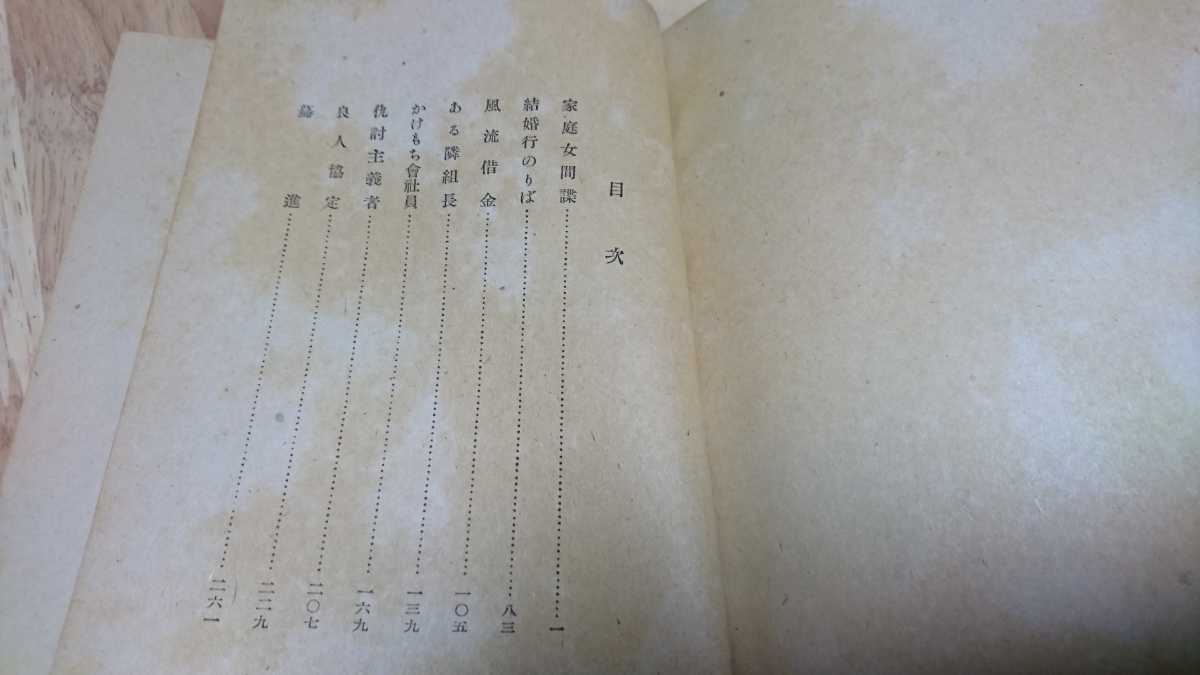 目次
家庭女間諜…………一
結婚行のりば…………八三
風流借金…………一〇五
ある隣組長…………一三九
かけもち會社員…………一六九
仇討主義者…………二〇七
良人協定…………二二九
驀進…………二六一